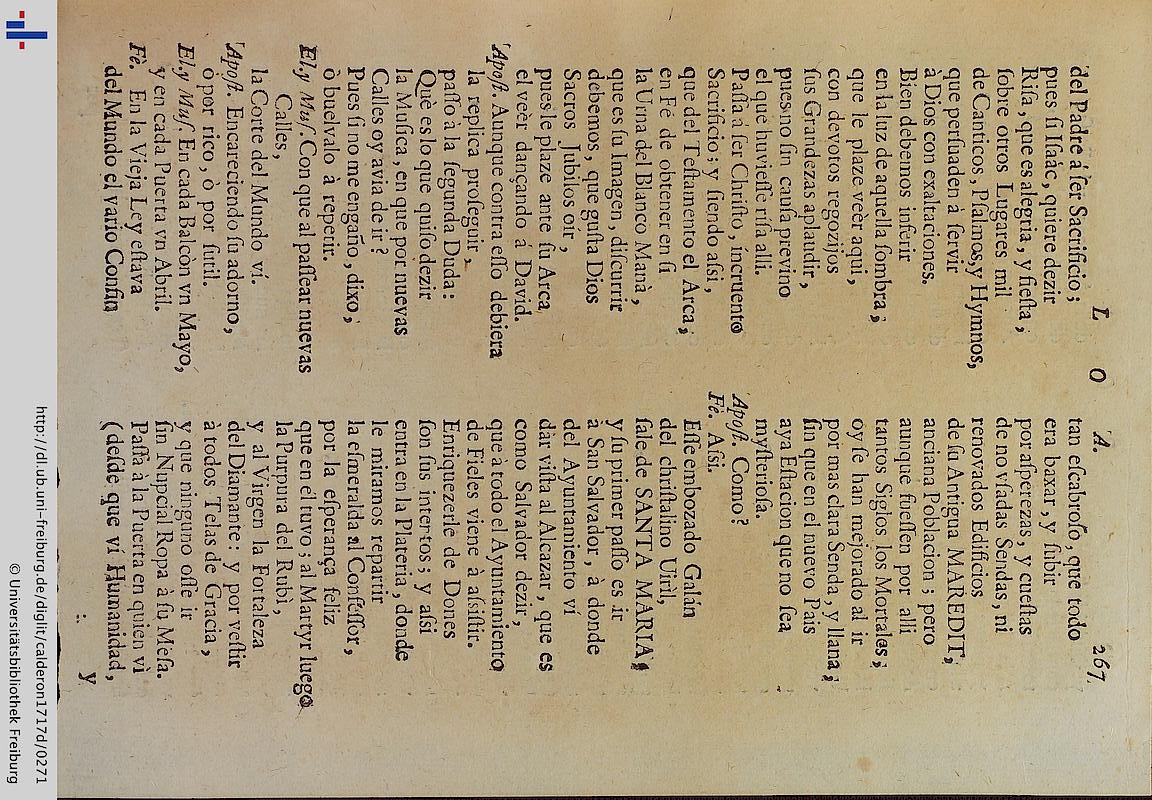 L O A. 267
del Padre à ſer Sacrificio ;
pues ſi Iſaác, quiere dezir
Riſa, que es alegria, y fieſta ;
ſobre otros Lugares mil
de Canticos, Pſalmos, y Hymnos,
que perſuaden à ſervir
à Dios con exaltaciones.
Bien debemos inferir
en la luz de aquella ſombra ;
que le plaze veèr aqui,
con devotos regozijos
ſus Grandezas aplaudir,
pues no ſin cauſa previno
el que huvieſſe riſa alli.
Paſſa à ſer Chriſto, incruento
Sacrificio ; y ſiendo aſsi,
que del Teſtamento el Arca ;
en Fè de obtener en ſi
la Urna del Blanco Manà,
que es ſu Imagen, diſcurrir
debemos, que guſta Dios
Sacros Jubilos oír,
pues le plaze ante ſu Arca
el veèr dançando à David.
Apoſt. Aunque contra eſſo debiera
la replica proſeguir,
paſſo à la ſegunda Duda:
Què es lo que quiſo dezir
la Muſica, en que por nuevas
Calles oy avia de ir?
Pues ſi no me engaño, dixo,
ò buelvalo à repetir.
El. y Muſ. Con que al paſſear nuevas
Calles,
la Corte del Mundo vi.
Apoſt. Encareciendo ſu adorno,
ò por rico, ò por ſutil.
El. y Muſ. En cada Balcòn vn Mayo,
y en cada Puerta vn Abril.
Fè. En la Vieja Ley eſtava
del Mundo el vario Confin
tan eſcabroſo, que todo
era baxar, y ſubir
por aſperezas, y cueſtas
de no vſadas Sendas, ni
renovados Edificios
de ſu Antigua MAREDIT,
anciana Poblacion ; pero
aunque fueſſen por alli
tantos Siglos los Mortales ;
oy ſe han mejorado al ir
por mas clara Senda, y llana ;
ſin que en el nuevo Pais
aya Eſtacion que no ſea
myſterioſa.
Apoſt. Como?
Fè. Aſsi.
Eſſe embozado Galán
del chriſtalino Uiril,
ſale de SANTA MARIA,
y ſu primer paſſo es ir
à San Salvador, à donde
del Ayuntamiento vi
dàr viſta al Alcazar, que es
como Salvador dezir,
que à todo el Ayuntamiento
de Fieles viene à aſsiſtir.
Enriquezerle de Dones
ſon ſus intentos ; y aſsi
entra en la Plateria, donde
le miramos repartir
la eſmeralda al Confeſſor,
por la eſperança feliz
que en èl tuvo ; al Martyr luego
la Purpura del Rubì,
y al Virgen la Fortaleza
del Diamante : y por veſtir
à todos Telas de Gracia,
y que ninguno oſſe ir
ſin Nupcial Ropa à ſu Meſa.
Paſſa à la Puerta en quien vì
(deſde que vi Humanidad,
y
http://dl.ub.uni-freiburg.de/diglit/calderon1717d/0271
© Universitätsbibliothek Freiburg